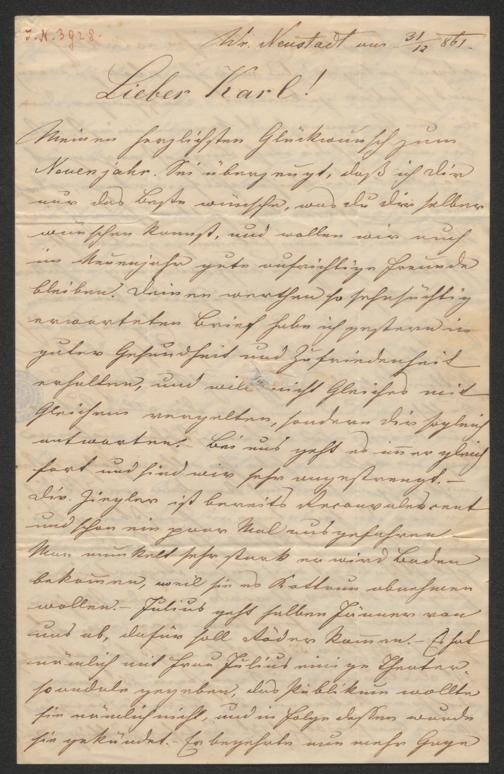 J.N. 3928.
Wr. Neustadt am 31/12 861.
Lieber Karl!
Meinen herzlichsten Glückwunsch zum
Neuenjahr. Sei überzeugt, daß ich Dir
nur das Beste wünsche, was du dir selber
wünschen kannst, und wollen wir auch
im Neuenjahr gute aufrichtige Freunde
bleiben. Deinen werthen so sehnsüchtig
erwarteten Brief habe ich gestern in
guter Gesundheit und Zufriedenheit
erhalten, und will nicht Gleiches mit
Gleichem vergelten, sondern dir sogleich
antworten. – Bei uns geht es immer gleich
fort und sind wir sehr angestrengt. –
Dir. Ziegler ist bereits Reconvalescent
und schon ein paar Mal ausgefahren
Man munkelt sehr stark er wird Baden
bekommen, weil sie es Kottaun abnehmen
wollen. – Julius geht halben Jänner von
uns ab, dafür soll Röder kommen. – Es hat
nämlich mit Frau Julius einige Theater
scandale gegeben, das Publikum wollte
sie nämlich nicht, und in Folge dessen wurde
sie gekündet. – Er begehrte nun mehr Gage